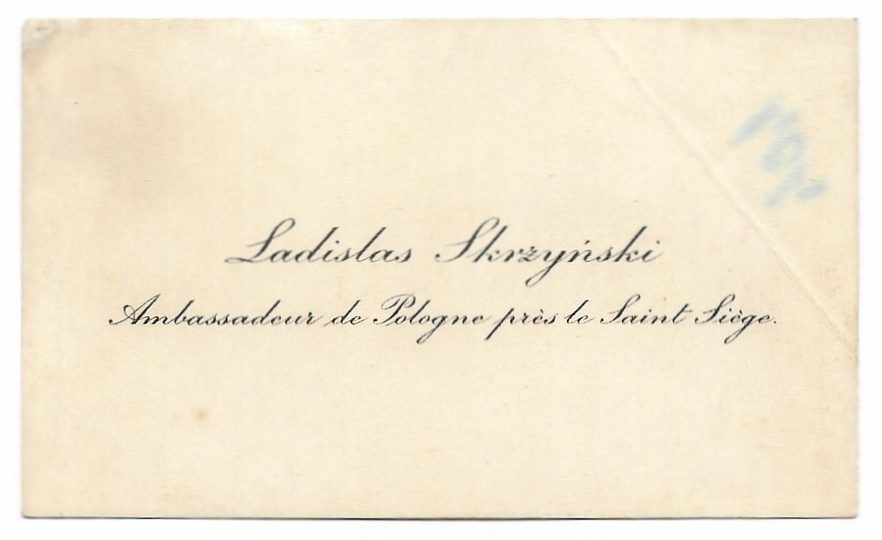 Ladislas Skrzyński
Ambassadeur de Pologne près le Saint Siège.